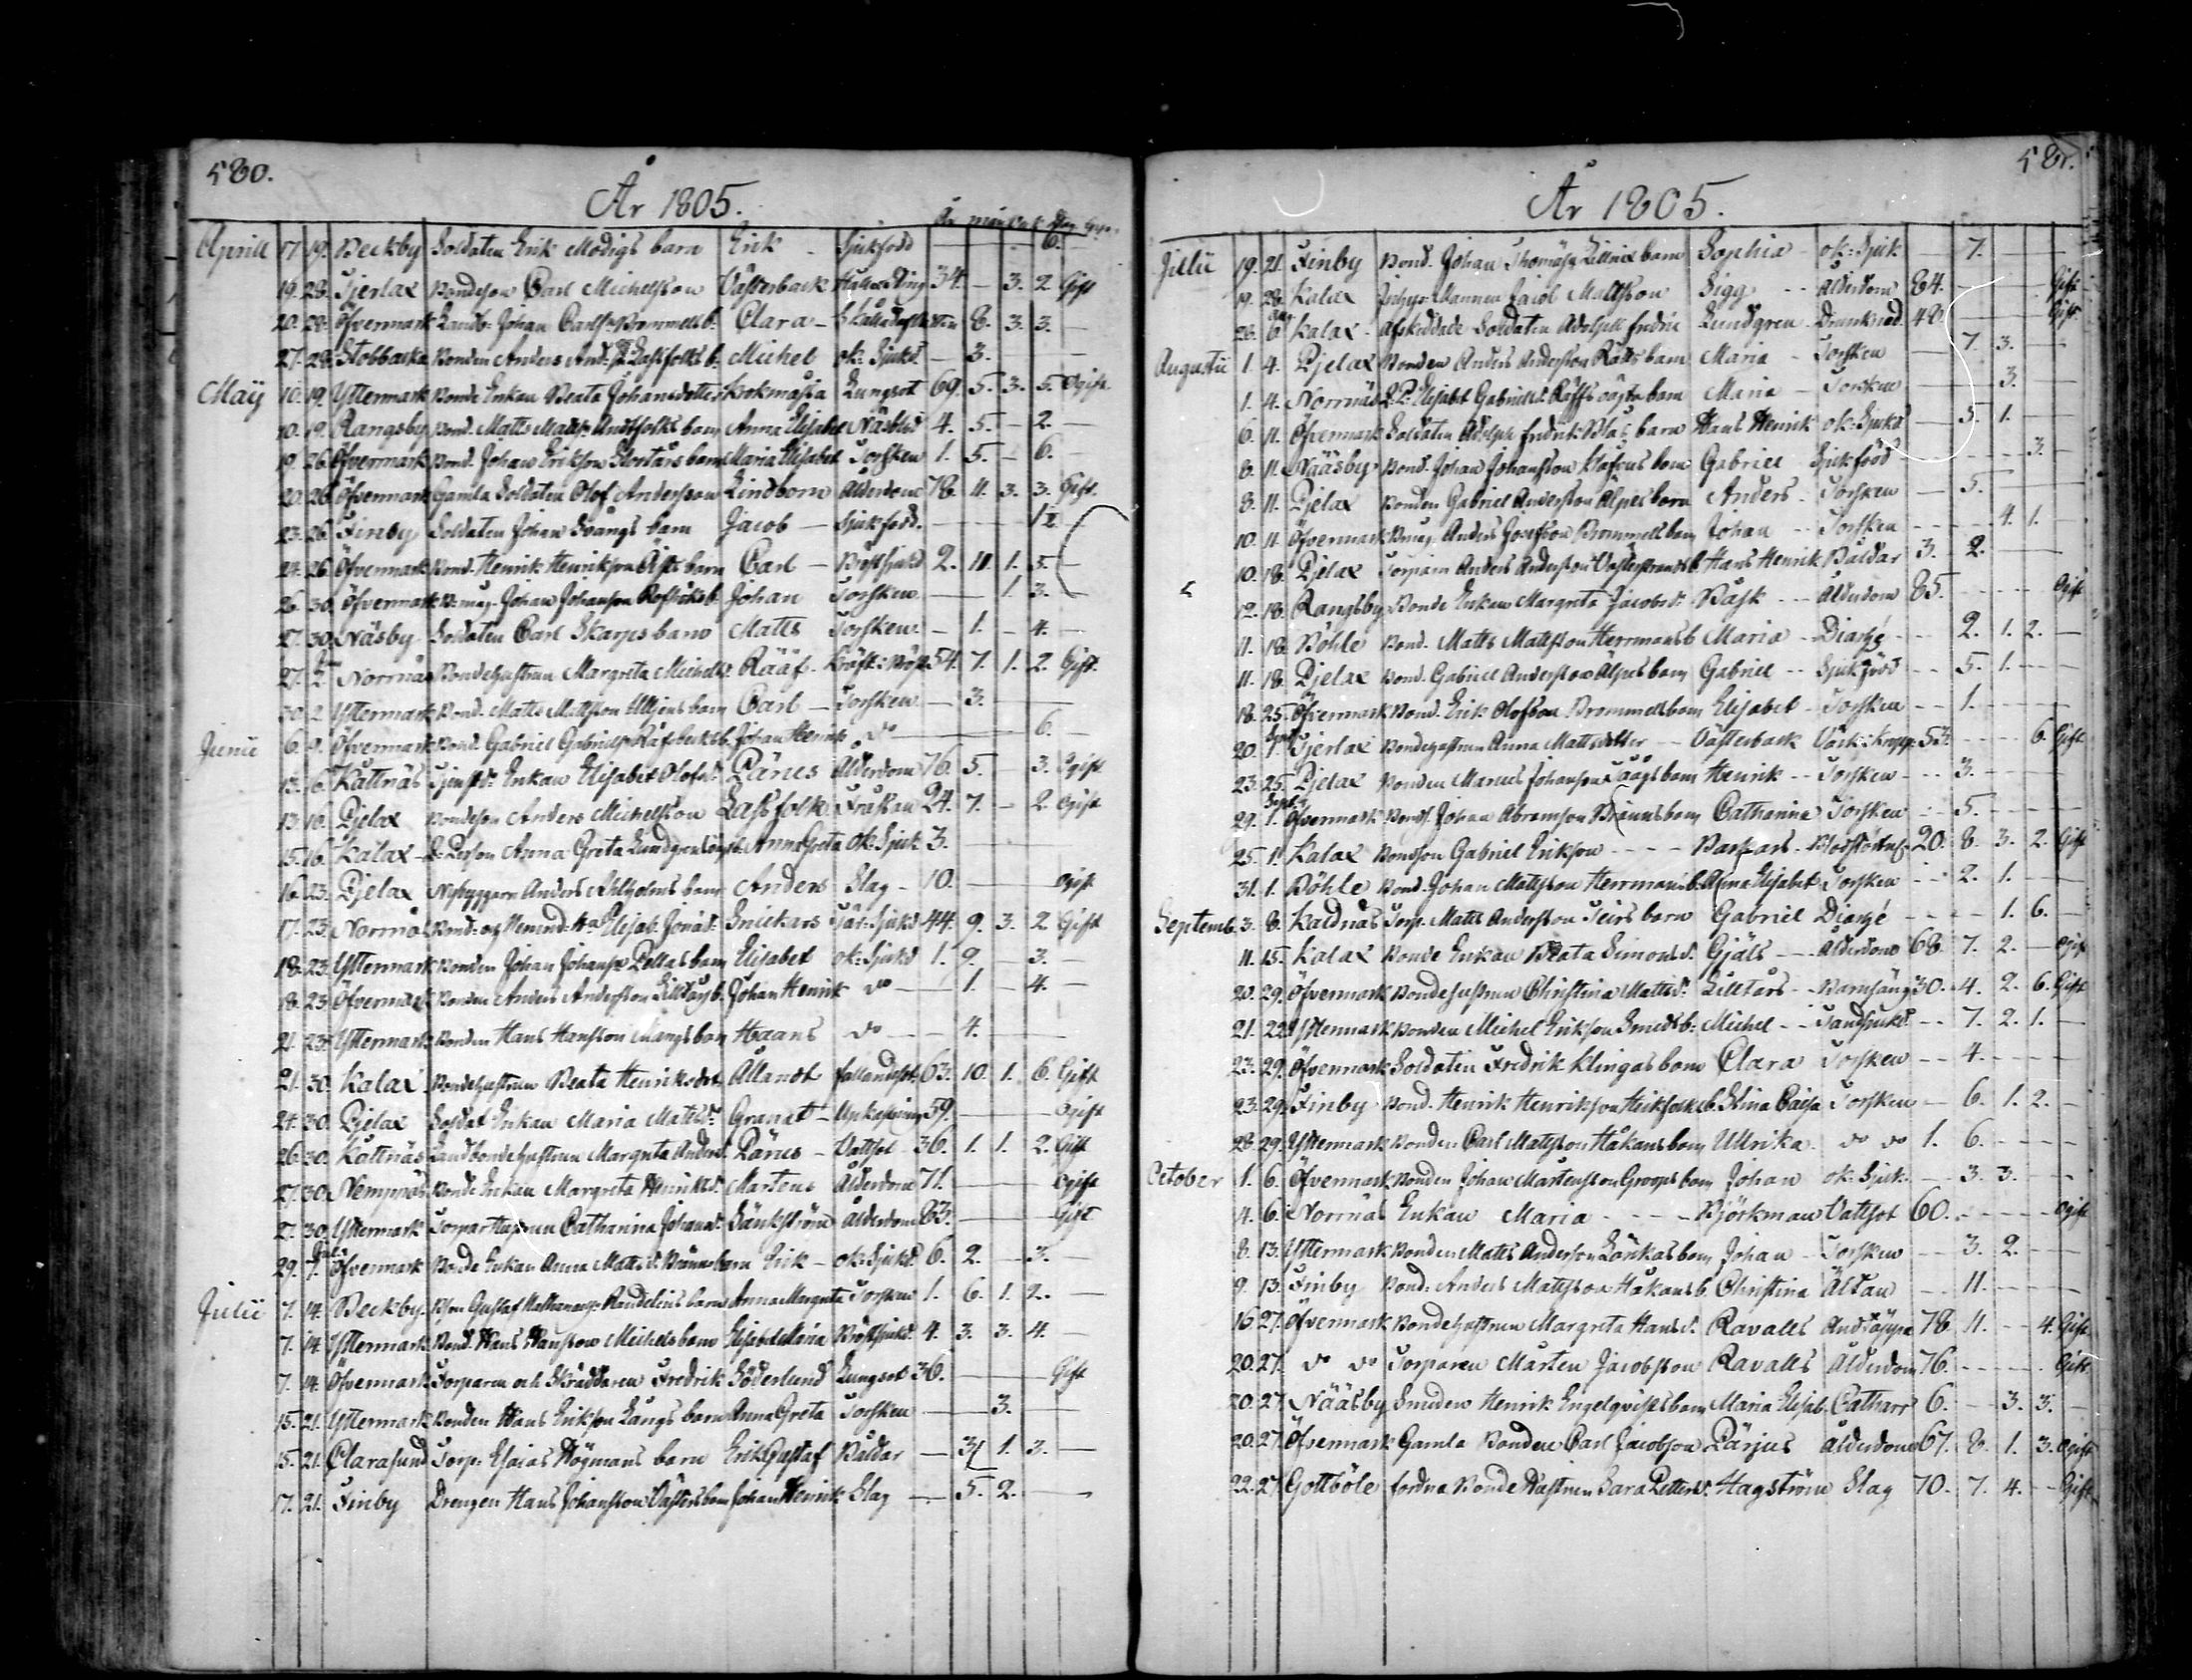 580.
År 1805.
År mån Vek Dag
Aprill 17. 19. Beckby Soldaten Erik Modigs barn Erik - Sjukfödd 6.
19. 28. Tjerlax Bondeson Carl Michelsson Västerback Håll o Sting 34. - 3. 2 Gift
20. 28. Öfvermark Landb. Johan Carlss. Brommels b. Clara - 8. 3. 3. -
27. 28. Stobbacka Bonden Anders And:s. Lassfolks b. Michel ok: Sjukd. - 3. -
Maij 10. 19. Yttermark Bonde Enkan Beata Johansdotter Krokmassa Lungsot 69. 5. 3. 5. Ogift
10. 19. Rangsby Bond. Matts Matts. barn Anna Elisabet Näsblod 4. 5. - 2.
19. 26. Öfvermark Bond. Johan Eriksson Storfårs barn Maria Elisabet Torsken 1. 5. - 6.
20. 26. Öfvermark Gamla Soldaten Olof Andersson Lindborn Ålderdom 78. 11. 3. 3. Gift.
23. 26. Finby Soldaten Johan Svångs barn Jacob - Sjukfödd. - 12
24. 26. Öfvermark Bond. Henrik Henrikson barn Carl - Bröstsjukd 2. 11. 1. 5. -
26. 30. Öfvermark Johan Johanson b. Johan Torsken - 1. 3. -
27. 30. Näsby Soldaten Carl Skarps barn Matts Torsken. - 1. - 4. -
27. 2. Norrnäs Bondehustrun Margreta Michelsd. Rääf 54. 7. 1. 2. Gift.
30. 2. Yttermark Bond. Matts Mattsson barn Carl - Torsken - 3. -
Junii 6. 9. Öfvermark Bond. Gabriel Gabrielss. b. Johan Henrik do - 6. -
13. 16. Kattnäs Enkan Elisabet Olofsd. Pänes Ålderdom 76. 5. 3. Ogift
13. 16. Pjelax Bondeson Anders Michelsson Lassfolk Fråssan 24. 7. - 2. Ogift
15. 16. Kalax Anna Greta Lundgren Anna Greta ok: Sjuk 3. -
16. 23. Pjelax Nybyggaren Anders Ahlholms barn Anders Slag - 10. - Ogift
17. 23. Norrnäs Elisab. Jonasd. Snickars 44. 9. 3. 2 Gift
18. 23. Yttermark Bonden Johan Johanss. Pellas barn Elisabet ok: Sjukd 1. 9. - 3. -
18. 23. Öfvermark Bonden Anders Andersson b. Johan Henrik do - 1. - 4. -
21. 23. Yttermark Bonden Hans Hansson Mangs barn Haans do - 4. -
21. 30. Kalax Bondehustrun Beata Henriksdot. Ålandt fallandesot. 63. 10. 1. 6. Gift
24. 30. Pjelax Soldat Enkan Maria Mattsd. Granat - 59. - Ogift
26. 30. Kattnäs Landbondehustrun Margreta Andersd. Pänes - Vattsot 36. 1. 1. 2. Gift
27. 30. Nempnäs Bonde Enkan Margreta Henriksd. Martens Ålderdom 71. - Ogift
27. 30. Yttermark Torparhustrun Catharina Johansd. Sänkström Ålderdom 83. - Gift
29. 7. Öfvermark Bonde Enkan Anna Mattsd. Bränns barn Erik - ok: Sjukd. 6. 2. - 3. -
Julii 7. 14. Beckby. Gustaf Randelins barn Anna Margreta Torsken 1. 6. 1. 2. -
7. 14. Yttermark Bond. Hans Hansson Michels barn Elisabet Maria Bröstsjukd. 4. 3. 3. 4. -
7. 14. Öfvermark Torparen och Skräddaren Fredrik Söderlund Lungsot 36. - Gift
15. 21. Yttermark Bonden Hans Erikson Långs barn Anna Greta Torsken - 3. -
15. 21. Clarasund Torp: Esaias Högmans barn Erik Gustaf Båldar - 3 1. 3. -
17. 21. Finby Drengen Hans Johansson Västers barn Johan Henrik Slag - 5. 2. -
581.
År 1805.
Julii 19. 21. Finby Bond. Johan Thomass. barn Sophia - ok: Sjuk - 7. -
19. 28. Kalax Jacob Mattsson Sigg - Ålderdom 84. - Gift
26. 6. Kalax - afskeddade Soldaten Adolph Fredric Lundgren - Drunknad. 48. - Gift
Augustii 1. 4. Pjelax Bonden Anders Andersson barn Maria - Torsken - 7. 3. -
1. 4. Norrnäs Elisabet Gabrielsd. oägta barn Maria - Torsken - 3. -
6. 11. Öfvermark Soldaten Adolph Fredrik Blas barn Hans Henrik ok: Sjukd - 3. 1. -
8. 11. Nääsby Bond. Johan Johansson barn Gabriel Sjukfödd - 3. -
8. 11. Pjelax Bonden Gabriel Andersson Alpes barn Anders - Torsken - 5. -
10. 11. Öfvermark Anders Josefsson Brommels barn Johan - Torsken - 4. 1. -
10. 18. Pjelax Anders Andersson Västerstrands b. Hans Henrik Båldar 3. 2. -
12. 18. Rangsby Bonde Enkan Margreta Jacobsd. Båsk - Ålderdom 85. - Ogift
11. 18. Böhle Bond. Matts Mattsson Herrmans b. Maria - - 2. 1. 2. -
11. 18. Pjelax Bond. Gabriel Andersson Alpes barn Gabriel - Sjukfödd - 5. 1. -
18. 25. Öfvermark Bond. Erik Olofson Brommels barn Elisabet - Torsken - 1. -
20. 1. Tjerlax Bondehustrun Anna Mattsdotter - Västerback 54. - 6. Gift
23. 25. Pjelax Bonden Marcus Johanson barn Henrik - Torsken - 3. -
29. 1. Öfvermark Bond. Johan Abramson Bränns barn Catharina Torsken - 5. -
25. 1. Kalax Bondson Gabriel Erikson - Barkars. 20. 8. 3. 2. Gift
31. 1. Böhle Bond. Johan Mattsson Herrmans b. Anna Elisabet Torsken - 2. 1. -
Septemb. 3. 8. Kaldnäs Torp. Matts Andersson Teirs barn Gabriel - 1. 6. -
11. 15. Kalax Bonde Enkan Beata Simonsd. Gjäls - Ålderdom 68. 7. 2. - Ogift
20. 29. Öfvermark Bondehustrun Christina Mattsd. Lilltårs - Barnsäng 30. 4. 2. 6. Gift
21. 22. Yttermark Bonden Michel Erikson Smeds b. Michel - Tandsjukd. - 7. 2. 1. -
23. 29. Öfvermark Soldaten Fredrik Klingas barn Clara Torsken - 4. -
23. 29. Finby Bond. Henrik Henrikson b. Stina Caisa Torsken - 6. 1. 2. -
28. 29. Yttermark Bonden Carl Mattsson Håkans barn Ullrika. do do 1. 6. -
October 1. 6. Öfvermark Bonden Johan Mårtensson Groops barn Johan ok: Sjuk. - 3. 3. -
4. 6. Norrnäs Enkan Maria - Björkman Vattsot 60. - Ogift
8. 13. Yttermark Bonden Matts Anderson barn Johan - Torsken - 3. 2. -
9. 13. Finby Bond. Anders Mattsson Håkans b. Christina Ältan - 11. -
16. 27. Öfvermark Bondehustrun Margreta Hansd. Ravalls Andtäppa 78 11. - 4. Gift
20. 27. do do Torparen Mårten Jacobsson Ravalls Ålderdom 76. - Gift.
20. 27. Nääsby Smeden Henrik Engelqvists barn Maria Elisab. Catharr 6. - 3. 3. -
20. 27. Öfvermark Gamla Bonden Carl Jacobson Pärjus Ålderdom 67. 8. 1. 3. Ogift
22. 27. Gottböle fordna Bonde Hustrun Sara Pettersd. Hagström Slag 70. 7. 4. - Gift